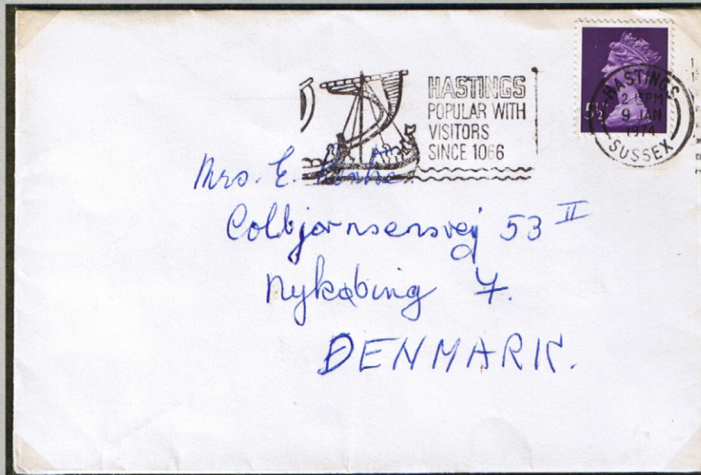 HASTINGS
POPULAR WITH
VISITORS
SINCE 1066
HASTINGS
2 15PM
9 JAN
1974
SUSSEX
5½
Mrs. E.
Colbjørnsensvej 53 II
Nykøbing F.
DENMARK.